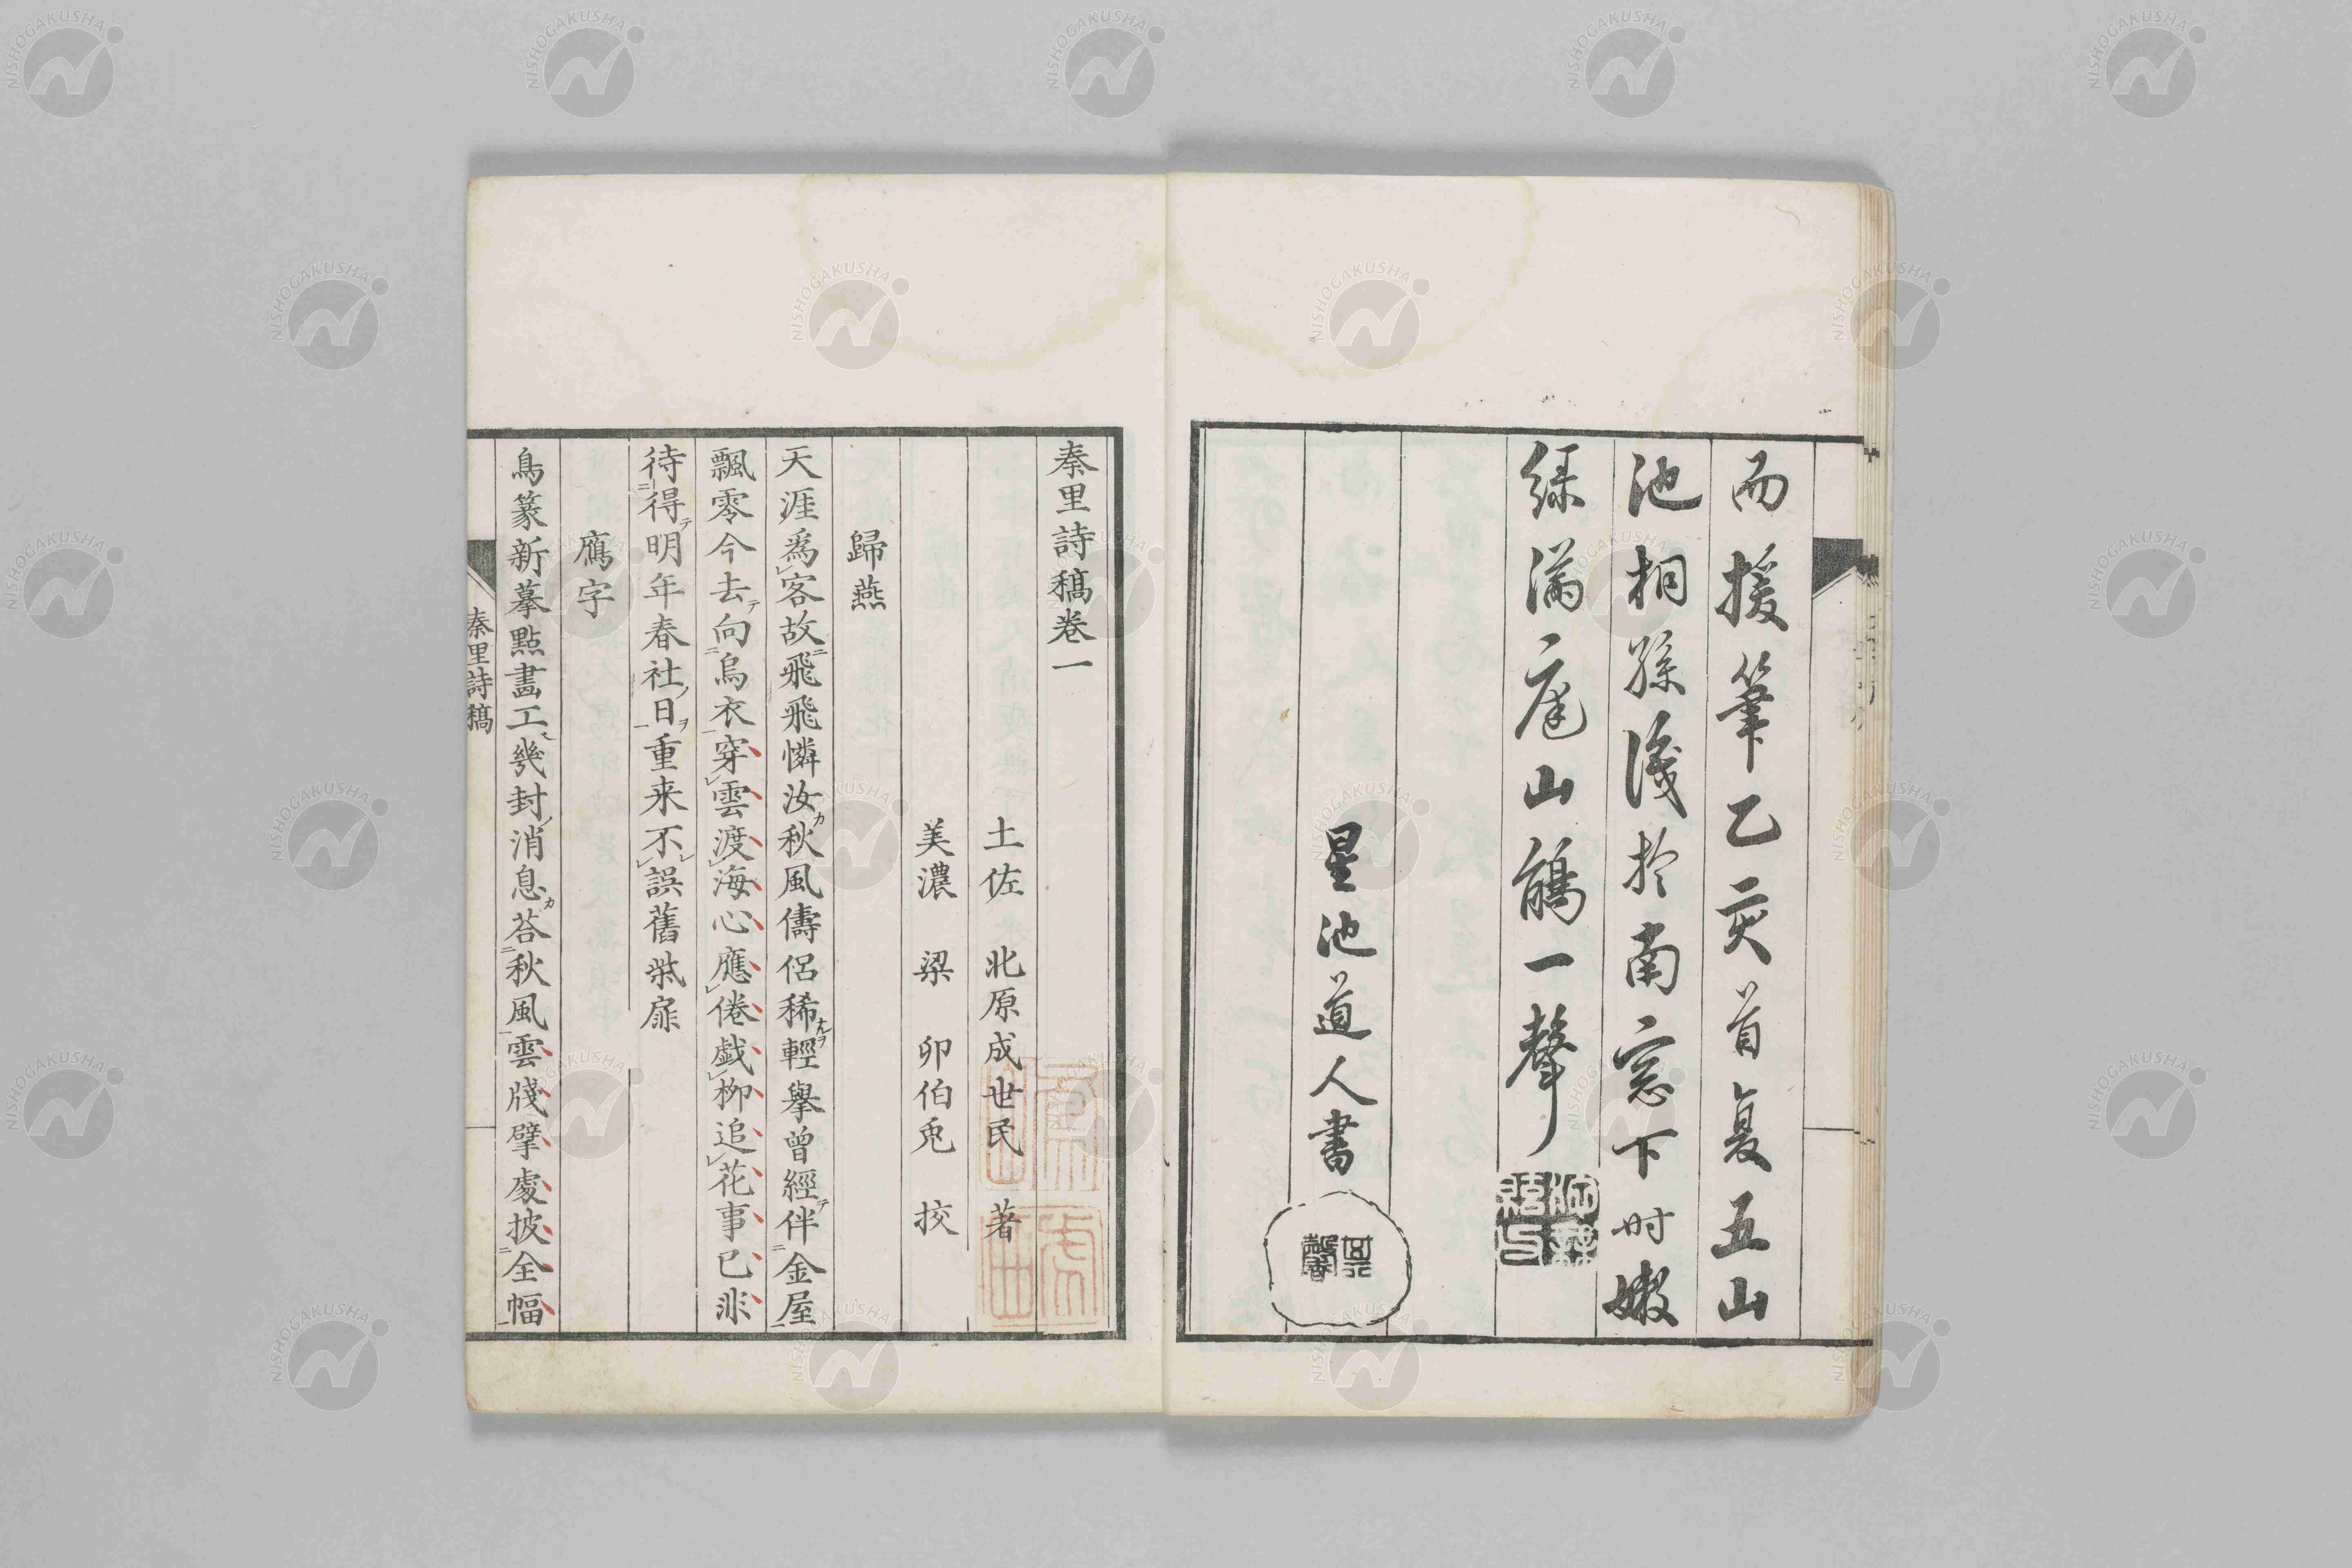 而援筆乙亥首夏五山
池桐孫識於南窓下时嫩
緑滿庭山鵑一聲
星池道人書
秦里詩稿卷一
土佐 北原成世民 著
美濃 梁 卯伯兎 挍
歸燕
天涯爲客故飛飛憐汝秋風儔侶稀輕擧曾經伴金屋
飄零今去向烏衣穿雲渡海心應倦戯栁追花事已非
待得明年春社日重来不誤舊柴扉
鴈字
鳥篆新摹點畵工幾封消息荅秋風雲牋擘處披全幅
秦里詩稿
NISHOGAKUSHA